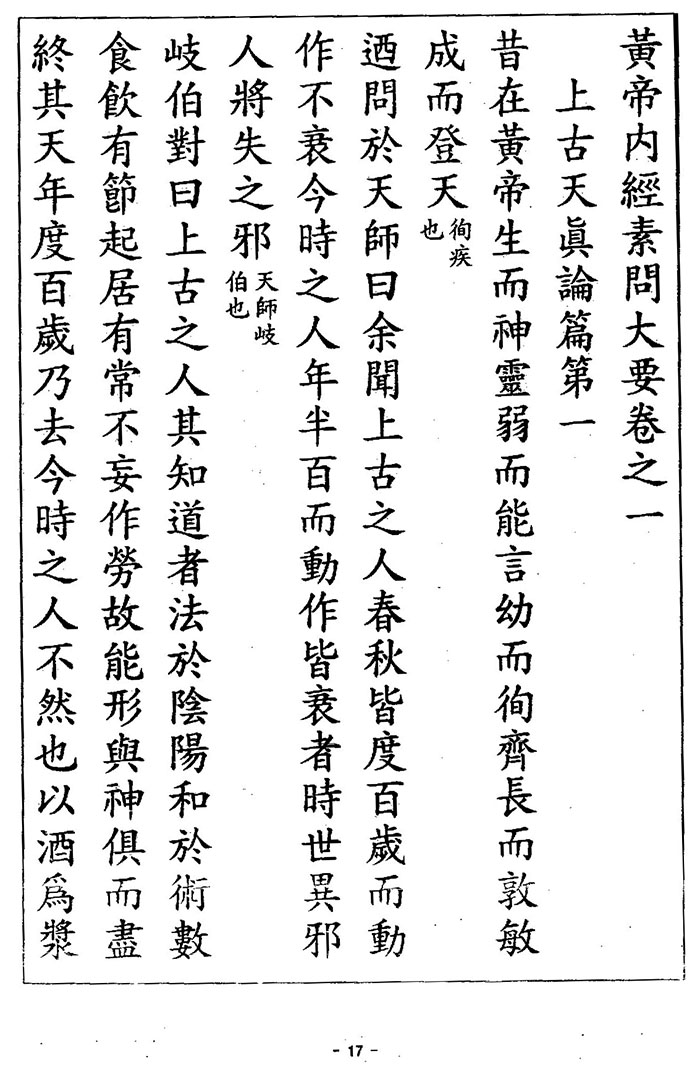 黃帝内經素問大要卷之一
上古天眞論篇第一
昔在黃帝生而神靈弱而能言幼而徇齊長而敦敏
成而登天徇疾也
迺問於天師曰余聞上古之人春秋皆度百歲而動
作不衰今時之人年半百而動作皆衰者時世異邪
人將失之邪天師岐伯也
岐伯對曰上古之人其知道者法於陰陽和於術數
食飮有節起居有常不妄作勞故能形與神俱而盡
終其天年度百歲乃去今時之人不然也以酒爲漿
- 17 -